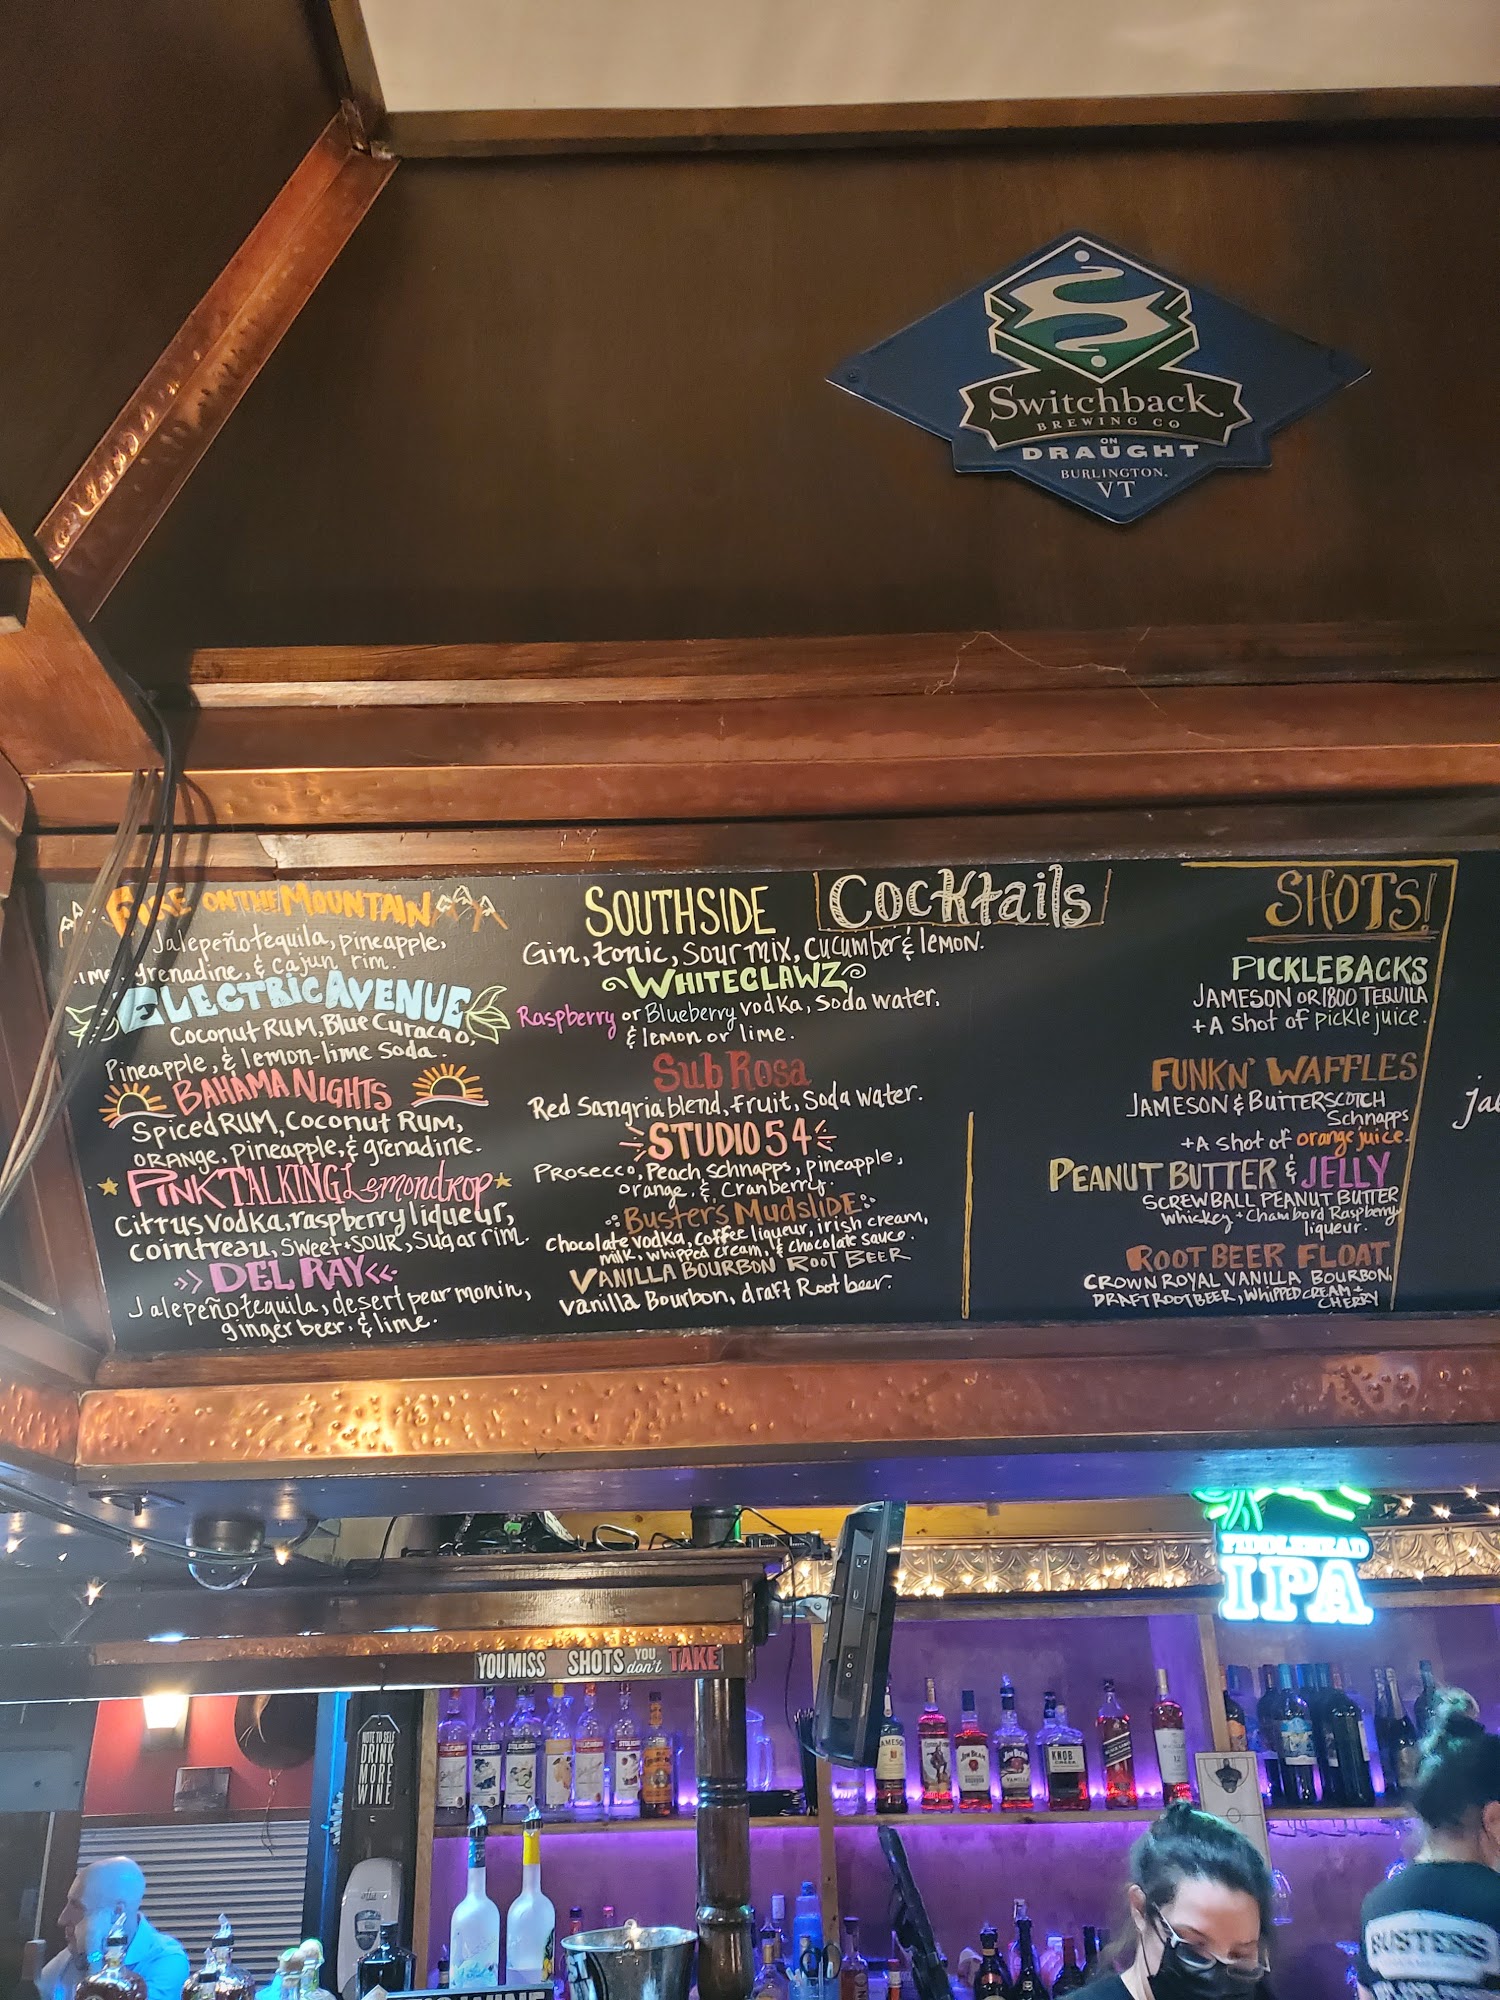 Switchback
BREWING CO
ON
DRAUGHT
BURLINGTON,
VT
Cocktails
FIRE ON THE MOUNTAIN
Jalepeño tequila, pineapple,
lime, grenadine, & cajun rim.
ELECTRIC AVENUE
Coconut RUM, Blue Curacao,
Pineapple, & lemon-lime Soda.
BAHAMA NIGHTS
Spiced RUM, Coconut Rum,
ORANGE, pineapple, & grenadine.
PINK TALKING Lemondrop
Citrus vodka, raspberry liqueur,
Cointreau, Sweet + SOUR, Sugar rim.
DEL RAY
Jalepeño tequila, desert pear monin,
ginger beer, & lime.
SOUTHSIDE
Gin, tonic, Sour mix, cucumber & lemon.
WHITECLAWZ
Raspberry or Blueberry vodka, Soda water,
& lemon or lime.
Sub Rosa
Red Sangria blend, Fruit, Soda water.
STUDIO 54
Prosecco, Peach Schnapps, pineapple,
orange, & Cranberry.
BUSTER'S MUDSLIDE
Chocolate vodka, coffee liqueur, irish cream,
milk, whipped cream, & chocolate sauce.
VANILLA BOURBON ROOT BEER
Vanilla Bourbon, draft Root beer.
SHOTS!
PICKLEBACKS
JAMESON OR 1800 TEQUILA
+ A Shot of pickle juice.
FUNKN' WAFFLES
JAMESON & BUTTERSCOTCH
Schnapps
+ A shot of orange juice.
PEANUT BUTTER & JELLY
SCREWBALL PEANUT BUTTER
Whiskey + Chambord Raspberry
liqueur.
ROOT BEER FLOAT
CROWN ROYAL VANILLA BOURBON,
DRAFT ROOT BEER, WHIPPED CREAM +
CHERRY
FIDDLEHEAD
IPA
YOU MISS SHOTS YOU don't TAKE
NOTE TO SELF
DRINK
MORE
WINE
JAMESON
JIM BEAM
JIM BEAM
VANILLA
KNOB
CREEK
BUSTERS